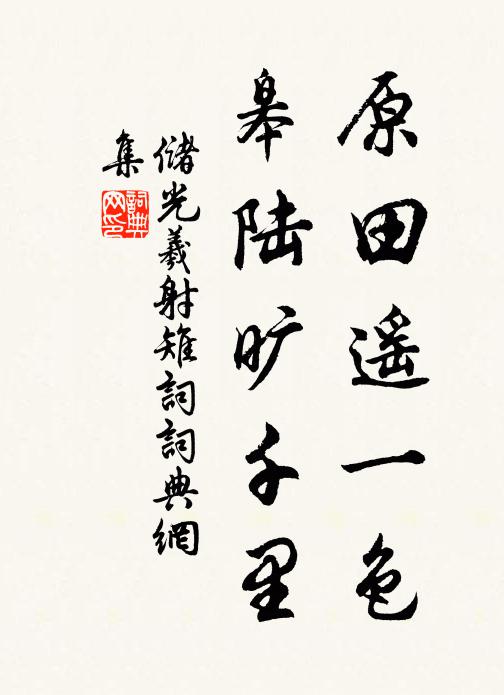 原田遥一色
皋陆旷千里
储光羲射雉詞詞典網
集
詞典
网印